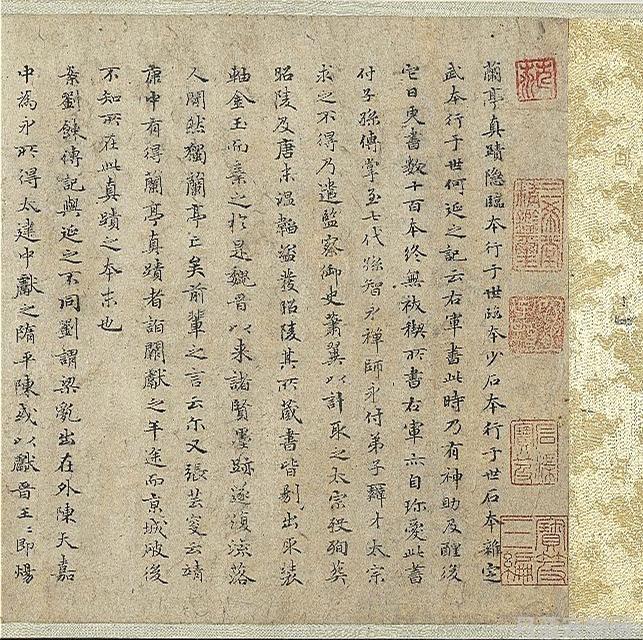 蘭亭真蹟隱臨本行于世臨本少石本行于世石本雜定
武本行于世何延之記云右軍書此時乃有神助及醒後
它日更書數十百本終無祓禊所書右軍亦自珍愛此書
付子孫傳掌至七代孫智永禪師永付弟子辯才太宗
求之不得乃遣監察御史蕭翼以計取之太宗歿殉葬
昭陵及唐末温韜盜發昭陵其所藏書皆剔出取裝
軸金玉而棄之於是魏晉以來諸賢墨跡遂復流落
人間然獨蘭亭亡矣前輩之言云尔又張芸叟云靖
康中有得蘭亭真蹟者詣闕獻之半途而京城破後
不知所在此真蹟之本末也
案劉餗傳記與延之不同劉謂梁亂出在外陳天嘉
中為永所得太建中獻之隋平陳或以獻晉王〻即煬
三希堂精鑑璽
宜子孫
寶笈三編